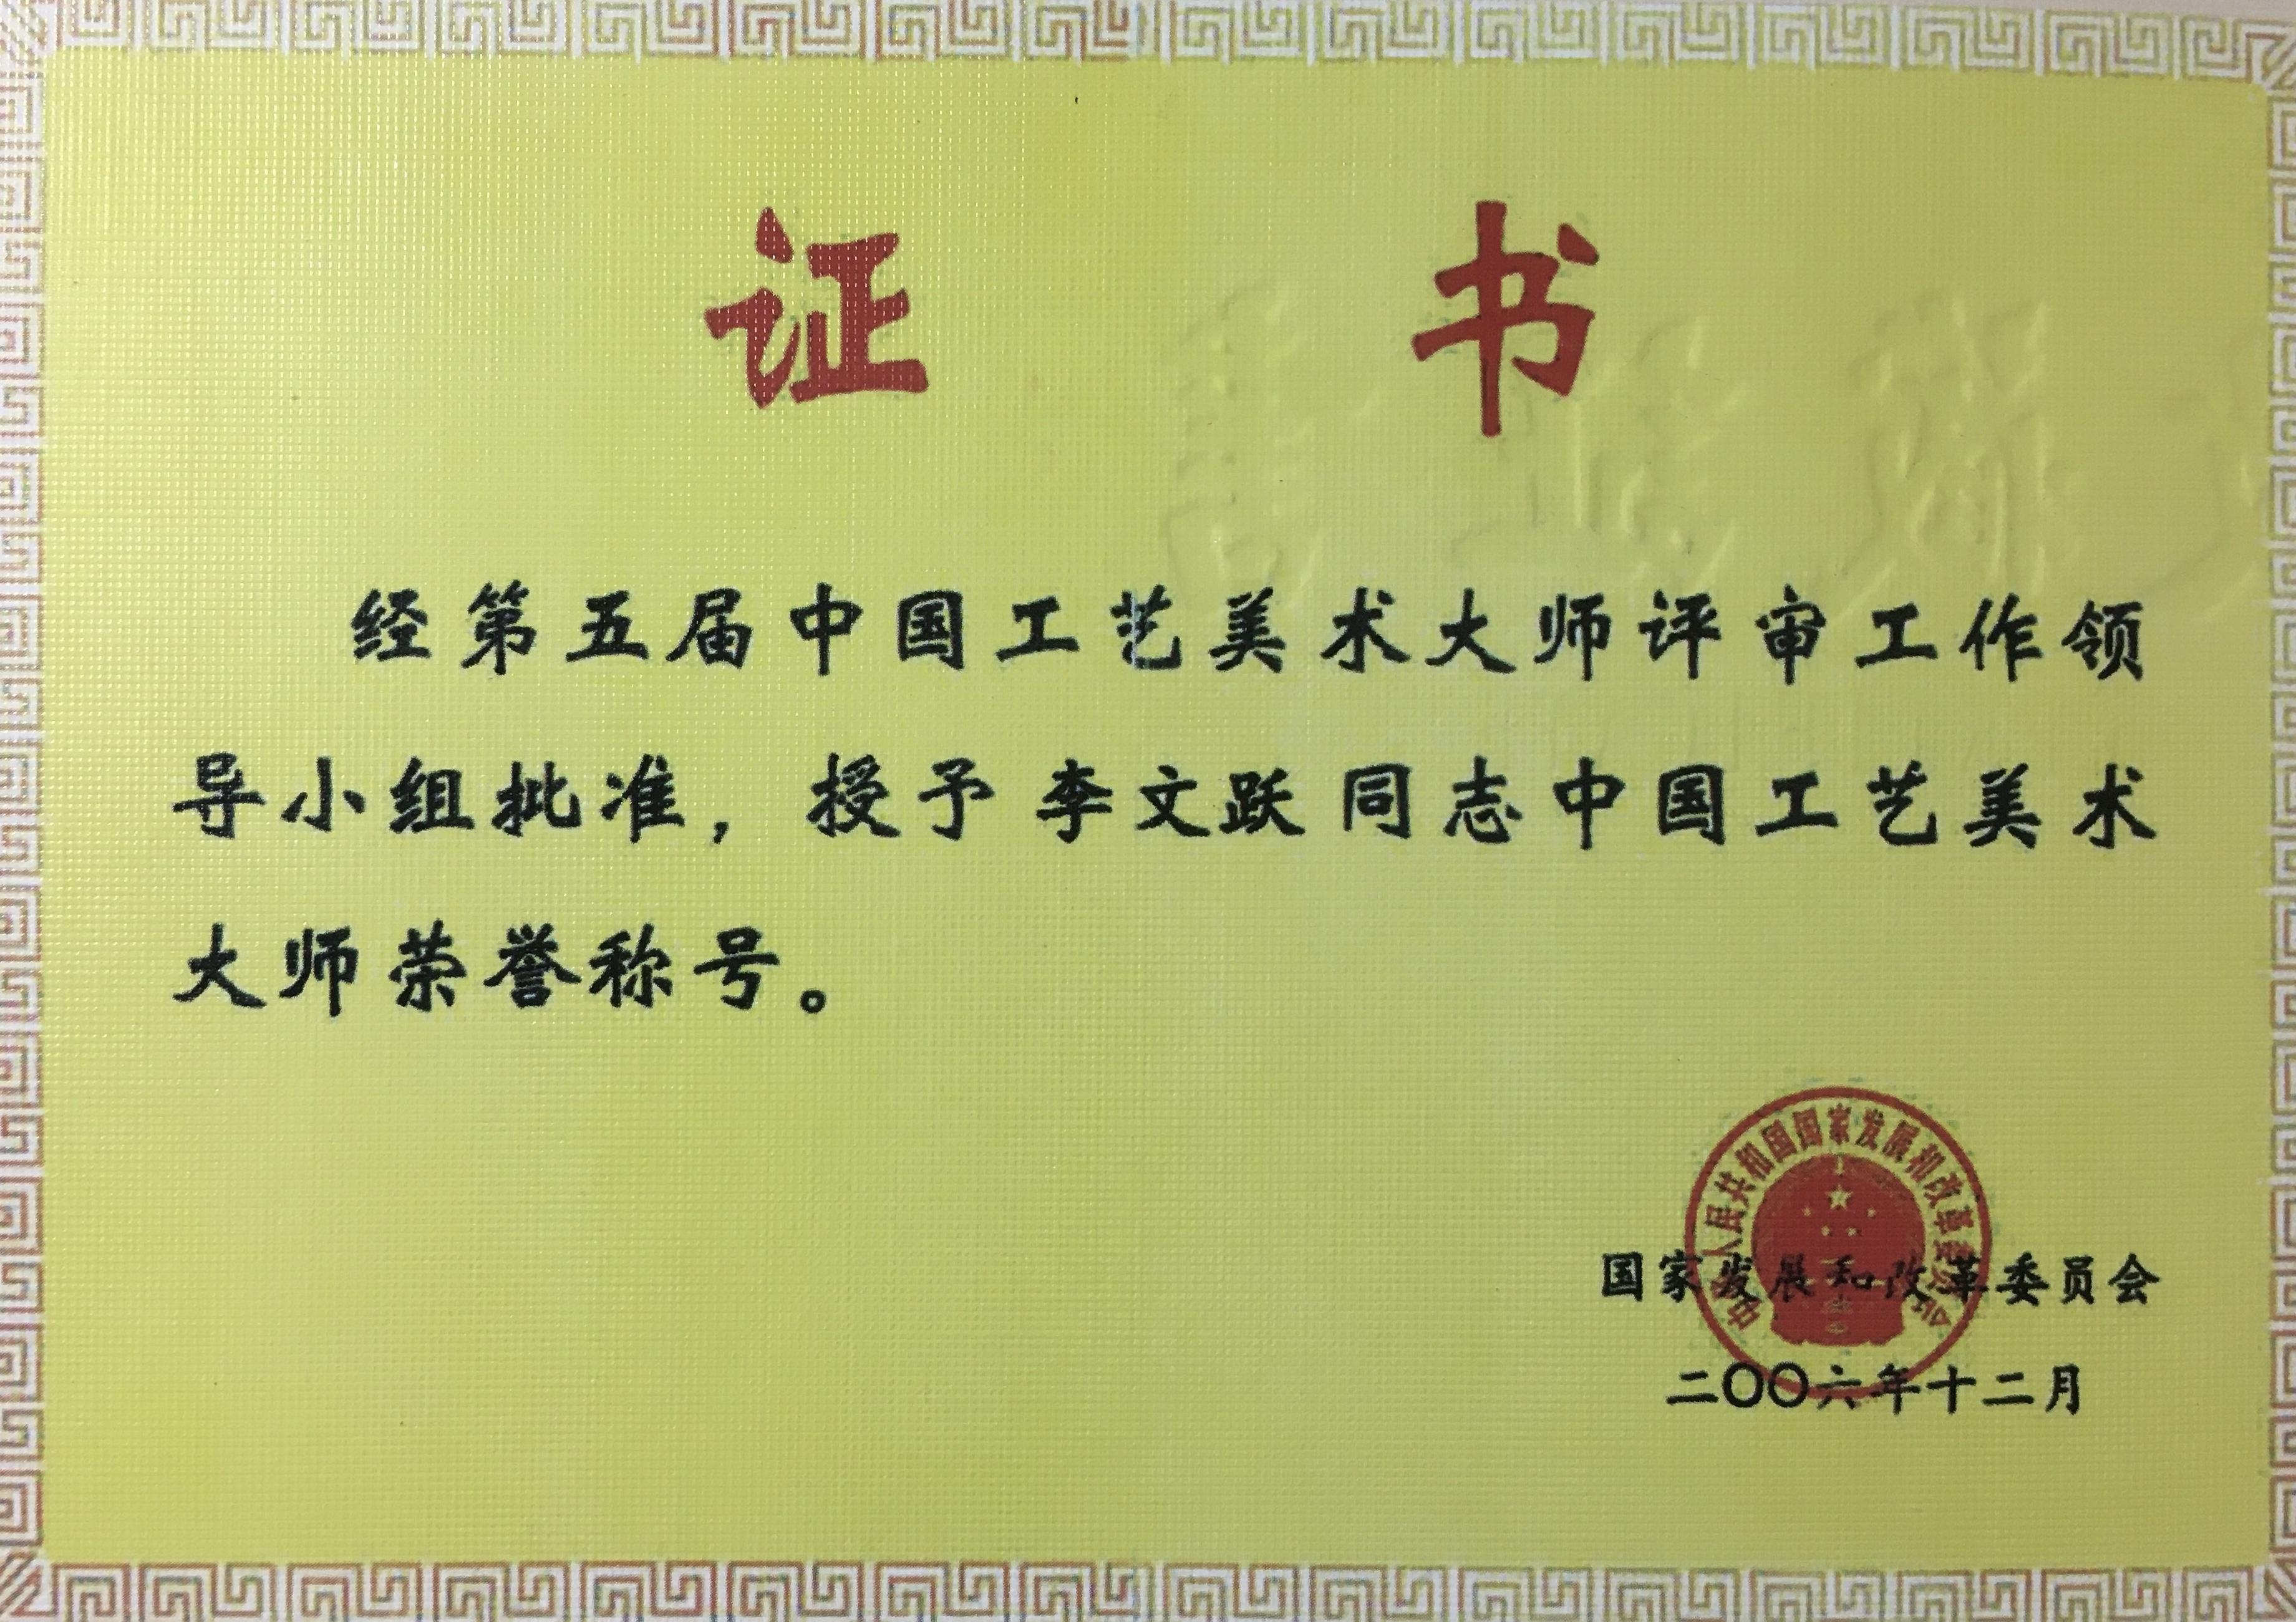 证 书
经第五届中国工艺美术大师评审工作领
导小组批准，授予 李文跃 同志中国工艺美术
大师荣誉称号。
中华人民共和国国家发展和改革委员会
国家发展和改革委员会
二〇〇六年十二月